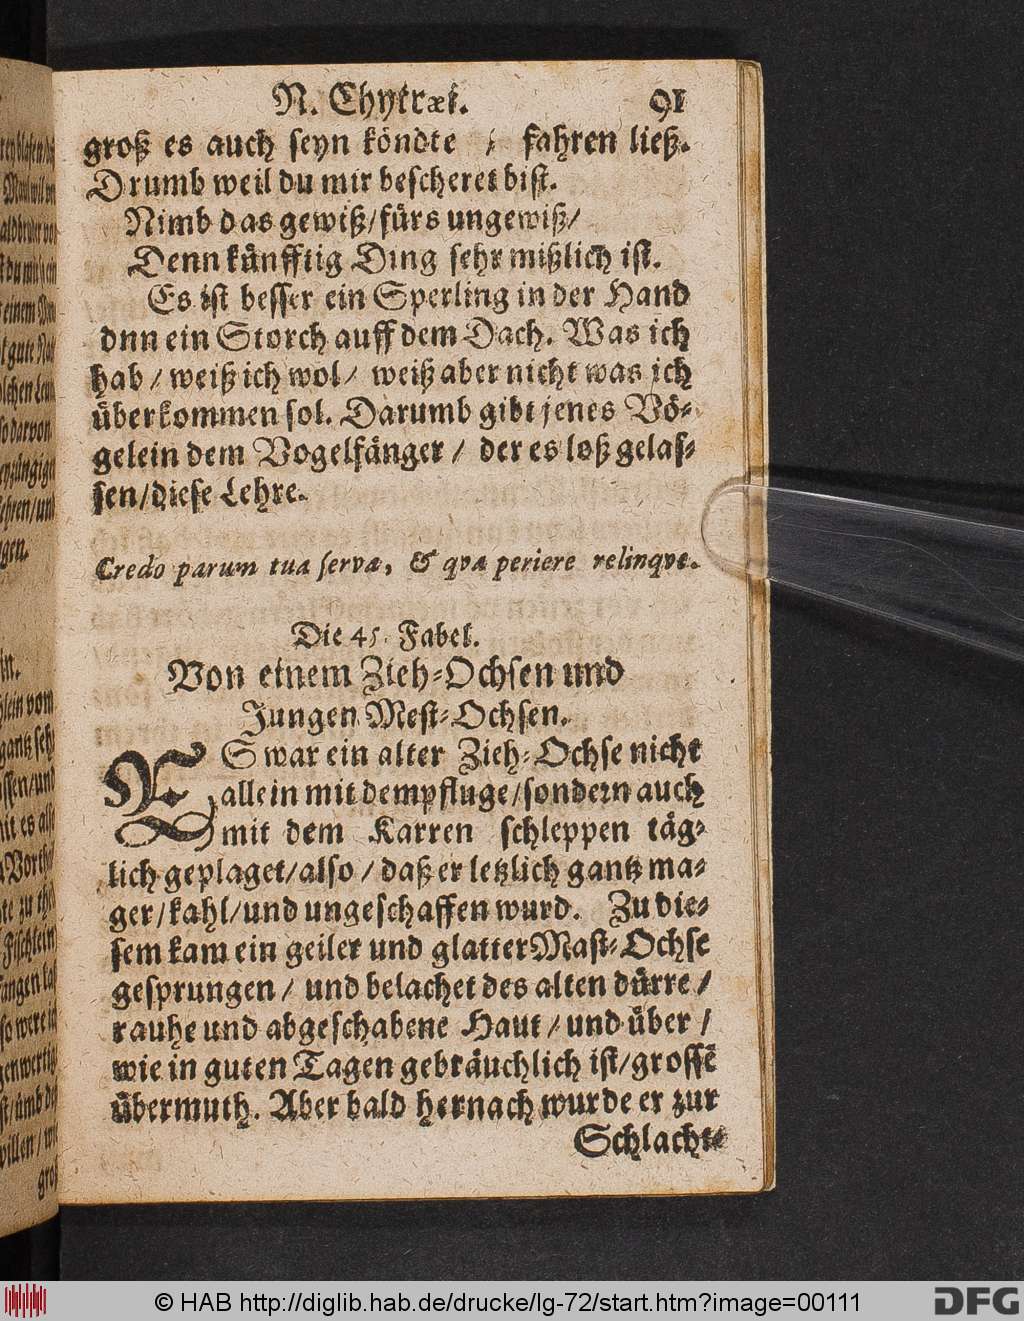 N. Chytræi. 91
groß es auch seyn köndte / fahren ließ.
Drumb weil du mir bescheret bist.
Nimb das gewiß/fürs ungewiß/
Denn künfftig Ding sehr mißlich ist.
Es ist besser ein Sperling in der Hand
dnn ein Storch auff dem Dach. Was ich
hab / weiß ich wol / weiß aber nicht was ich
überkommen sol. Darumb gibt jenes Vö-
gelein dem Vogelfänger / der es loß gelas-
sen/diese Lehre.
Credo parum tua serva, & qva periere relinqve.
Die 45. Fabel.
Von einem Zieh-Ochsen und
Jungen Mest-Ochsen.
ES war ein alter Zieh-Ochse nicht
allein mit dem pfluge/sondern auch
mit dem Karren schleppen täg-
lich geplaget/also / daß er letzlich gantz ma-
ger/kahl/und ungeschaffen wurd. Zu die-
sem kam ein geiler und glatter Mast-Ochse
gesprungen / und belachet des alten dürre /
rauhe und abgeschabene Haut / und über /
wie in guten Tagen gebräuchlich ist/grossē
übermuth. Aber bald hernach wurde er zur
Schlacht-
© HAB http://diglib.hab.de/drucke/lg-72/start.htm?image=00111
DFG